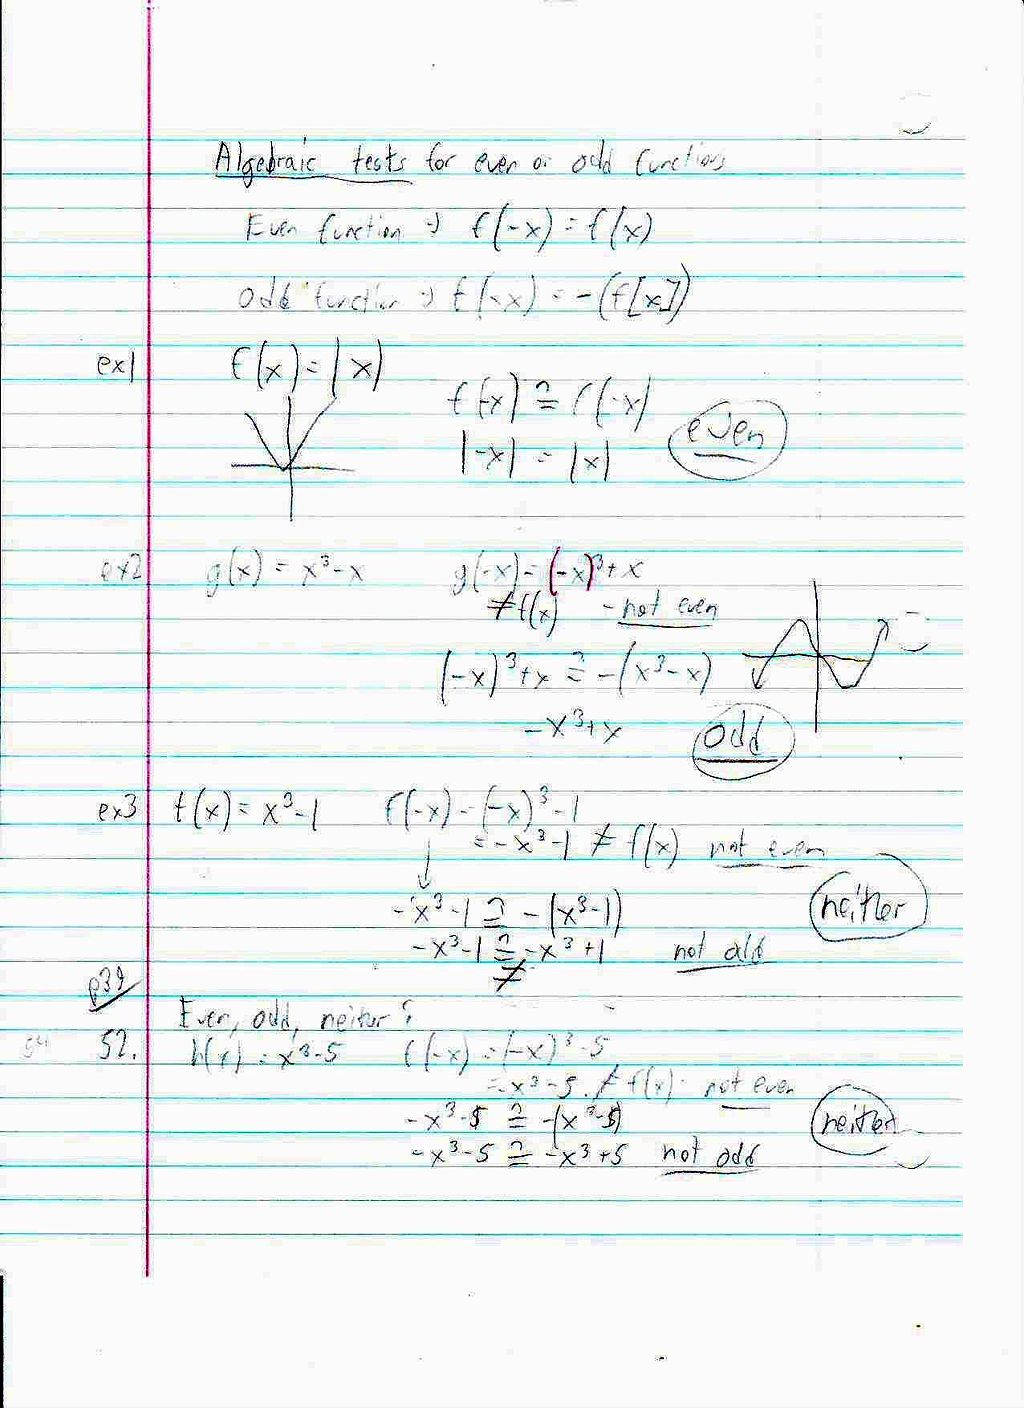 Algebraic tests for even or odd functions
Even function → f(-x) = f(x)
Odd function → f(-x) = -(f[x])
ex1 f(x) = |x|
f(x) ≟ f(-x)
|-x| = |x| even
ex2 g(x) = x³-x g(-x) = (-x)³+x
≠ f(x) - not even
(-x)³+x ≟ -(x³-x)
-x³+x odd
ex3 f(x) = x³-1 f(-x) = (-x)³-1
= -x³-1 ≠ f(x) not even
-x³-1 ≟ -(x³-1) neither
-x³-1 ≟ -x³+1 not odd
≠
p39
Even, odd, neither?
52. h(x) = x³-5 f(-x) = (-x)³-5
= -x³-5 ≠ f(x) not even
-x³-5 ≟ -(x³-5) neither
-x³-5 ≟ -x³+5 not odd